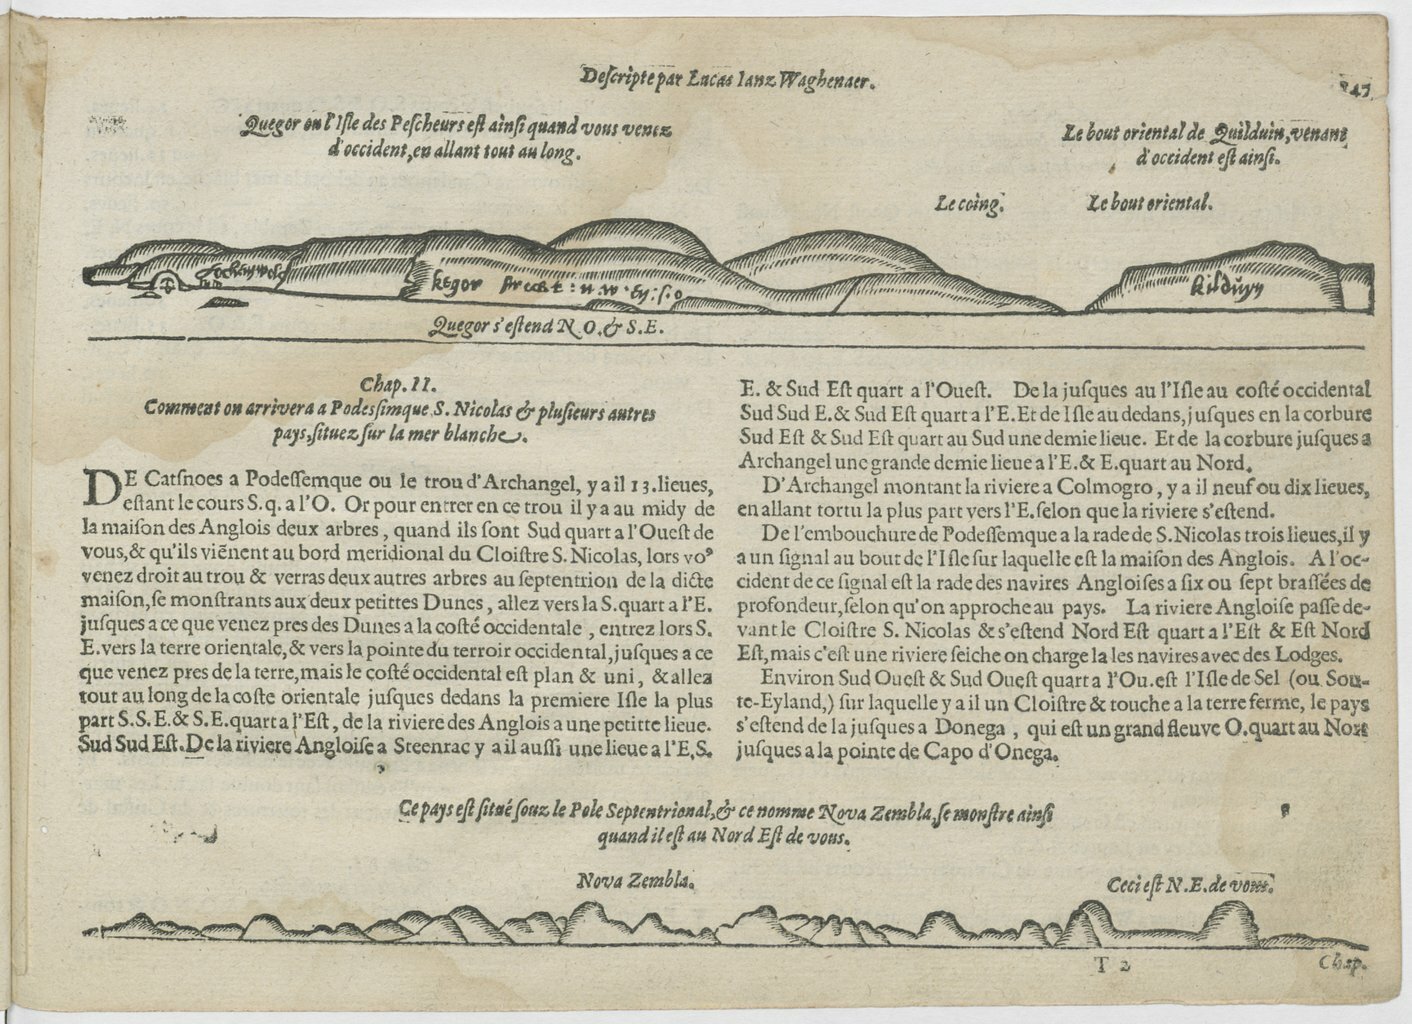 Descripte par Lucas Ianz Waghenaer.
Quegor ou l'Isle des Pescheurs est ainsi quand vous venez
d'occident, en allant tout au long.
Le bout oriental de Quilduin, venant
d'occident est ainsi.
Le coing.
Le bout oriental.
kegor
kilduyn
Quegor s'estend N O. & S. E.
Chap. II.
Comment on arrivera a Podessimque S. Nicolas & plusieurs autres
pays, situez sur la mer blanche.
DE Catsnoes a Podessemque ou le trou d'Archangel, y a il 13. lieues,
estant le cours S. q. a l'O. Or pour entrer en ce trou il y a au midy de
la maison des Anglois deux arbres, quand ils sont Sud quart a l'Ouest de
vous, & qu'ils viēnent au bord meridional du Cloistre S. Nicolas, lors vo⁹
venez droit au trou & verras deux autres arbres au septentrion de la dicte
maison, se monstrants aux deux petittes Dunes, allez vers la S. quart a l'E.
jusques a ce que venez pres des Dunes a la costé occidentale, entrez lors S.
E. vers la terre orientale, & vers la pointe du terroir occidental, jusques a ce
que venez pres de la terre, mais le costé occidental est plan & uni, & allez
tout au long de la coste orientale jusques dedans la premiere Isle la plus
part S. S. E. & S. E. quart a l'Est, de la riviere des Anglois a une petitte lieue.
Sud Sud Est. De la riviere Angloise a Steenrac y a il aussi une lieue a l'E, S.
E. & Sud Est quart a l'Ouest. De la jusques au l'Isle au costé occidental
Sud Sud E. & Sud Est quart a l'E. Et de Isle au dedans, jusques en la corbure
Sud Est & Sud Est quart au Sud une demie lieue. Et de la corbure jusques a
Archangel une grande demie lieue a l'E. & E. quart au Nord.
D'Archangel montant la riviere a Colmogro, y a il neuf ou dix lieues,
en allant tortu la plus part vers l'E. selon que la riviere s'estend.
De l'embouchure de Podessemque a la rade de S. Nicolas trois lieues, il y
a un signal au bout de l'Isle sur laquelle est la maison des Anglois. A l'oc-
cident de ce signal est la rade des navires Angloises a six ou sept brassées de
profondeur, selon qu'on approche au pays. La riviere Angloise passe de-
vant le Cloistre S. Nicolas & s'estend Nord Est quart a l'Est & Est Nord
Est, mais c'est une riviere seiche on charge la les navires avec des Lodges.
Environ Sud Ouest & Sud Ouest quart a l'Ou. est l'Isle de Sel (ou Sou-
te-Eyland,) sur laquelle y a il un Cloistre & touche a la terre ferme, le pays
s'estend de la jusques a Donega, qui est un grand fleuve O. quart au Nort
jusques a la pointe de Capo d'Onega.
Ce pays est situé souz le Pole Septentrional, & ce nomme Nova Zembla, se monstre ainsi
quand il est au Nord Est de vous.
Nova Zembla.
Ceci est N. E. de vous.
T 2
Chap.